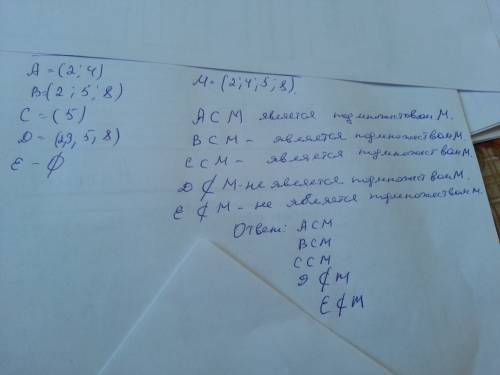 A = (2; 4)
B = (2; 5; 8)
C = (5)
D = (3, 5, 8)
E - ∅
M = (2; 4; 5; 8)
A ⊂ M является подмножеством М.
B ⊂ M - является подмножеством М.
C ⊂ M - является подмножеством М.
D ⊄ M - не является подмножеством М.
E ⊄ M - не является подмножеством М.
Ответ: A ⊂ M
B ⊂ M
C ⊂ M
D ⊄ M
E ⊄ M